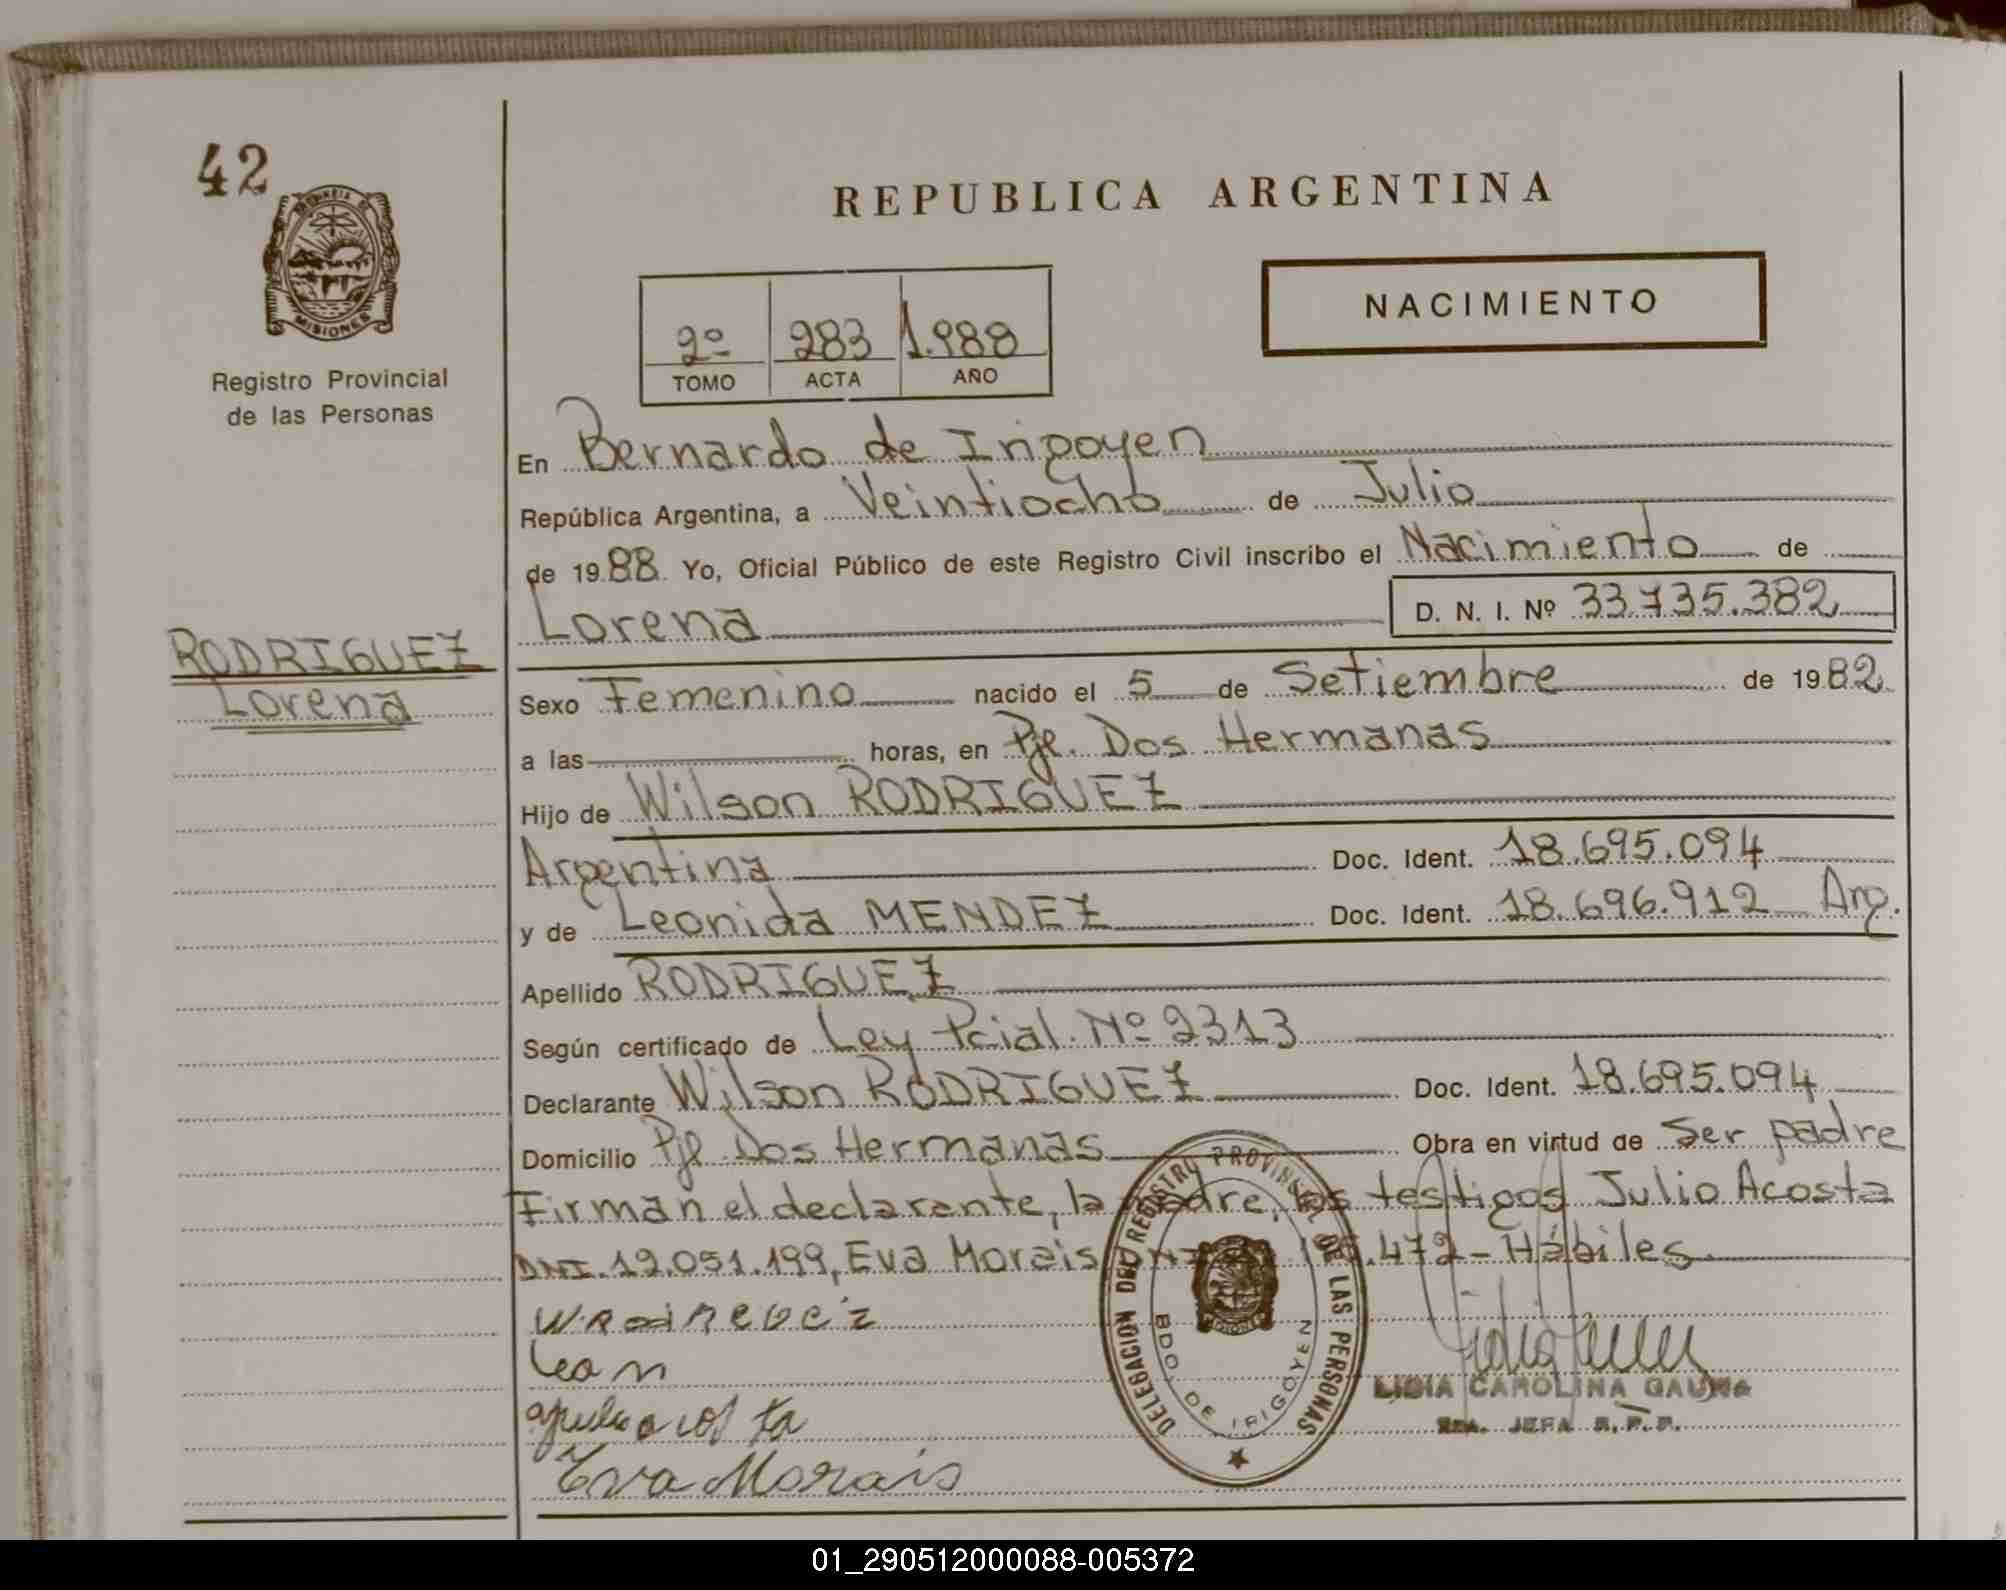 42
PROVINCIA D
MISIONES
Registro Provincial
de las Personas
RODRIGUEZ
Lorena
REPUBLICA ARGENTINA
NACIMIENTO
2º 283 1.988
TOMO ACTA AÑO
En Bernardo de Irigoyen
República Argentina, a Veintiocho de Julio
de 1988 Yo, Oficial Público de este Registro Civil inscribo el Nacimiento de
Lorena D. N. I. Nº 33.735.382
Sexo Femenino nacido el 5 de Setiembre de 1982
a las horas, en Pje. Dos Hermanas
Hijo de Wilson RODRIGUEZ
Argentina Doc. Ident. 18.695.094
y de Leonida MENDEZ Doc. Ident. 18.696.912 Arg.
Apellido RODRIGUEZ
Según certificado de Ley Pcial. Nº 2313
Declarante Wilson RODRIGUEZ Doc. Ident. 18.695.094
Domicilio Pje Dos Hermanas Obra en virtud de Ser padre
Firman el declarante, la madre, los testigos Julio Acosta
DNI. 12.051.199, Eva Morais .472 - Hábiles
Eva Morais
DELEGACION DEL REGISTRO PROVINCIAL DE LAS PERSONAS
BDO. DE IRIGOYEN
MISIONES
LIDIA CAROLINA GAUNA
JEFA R.P.P.
01_290512000088-005372